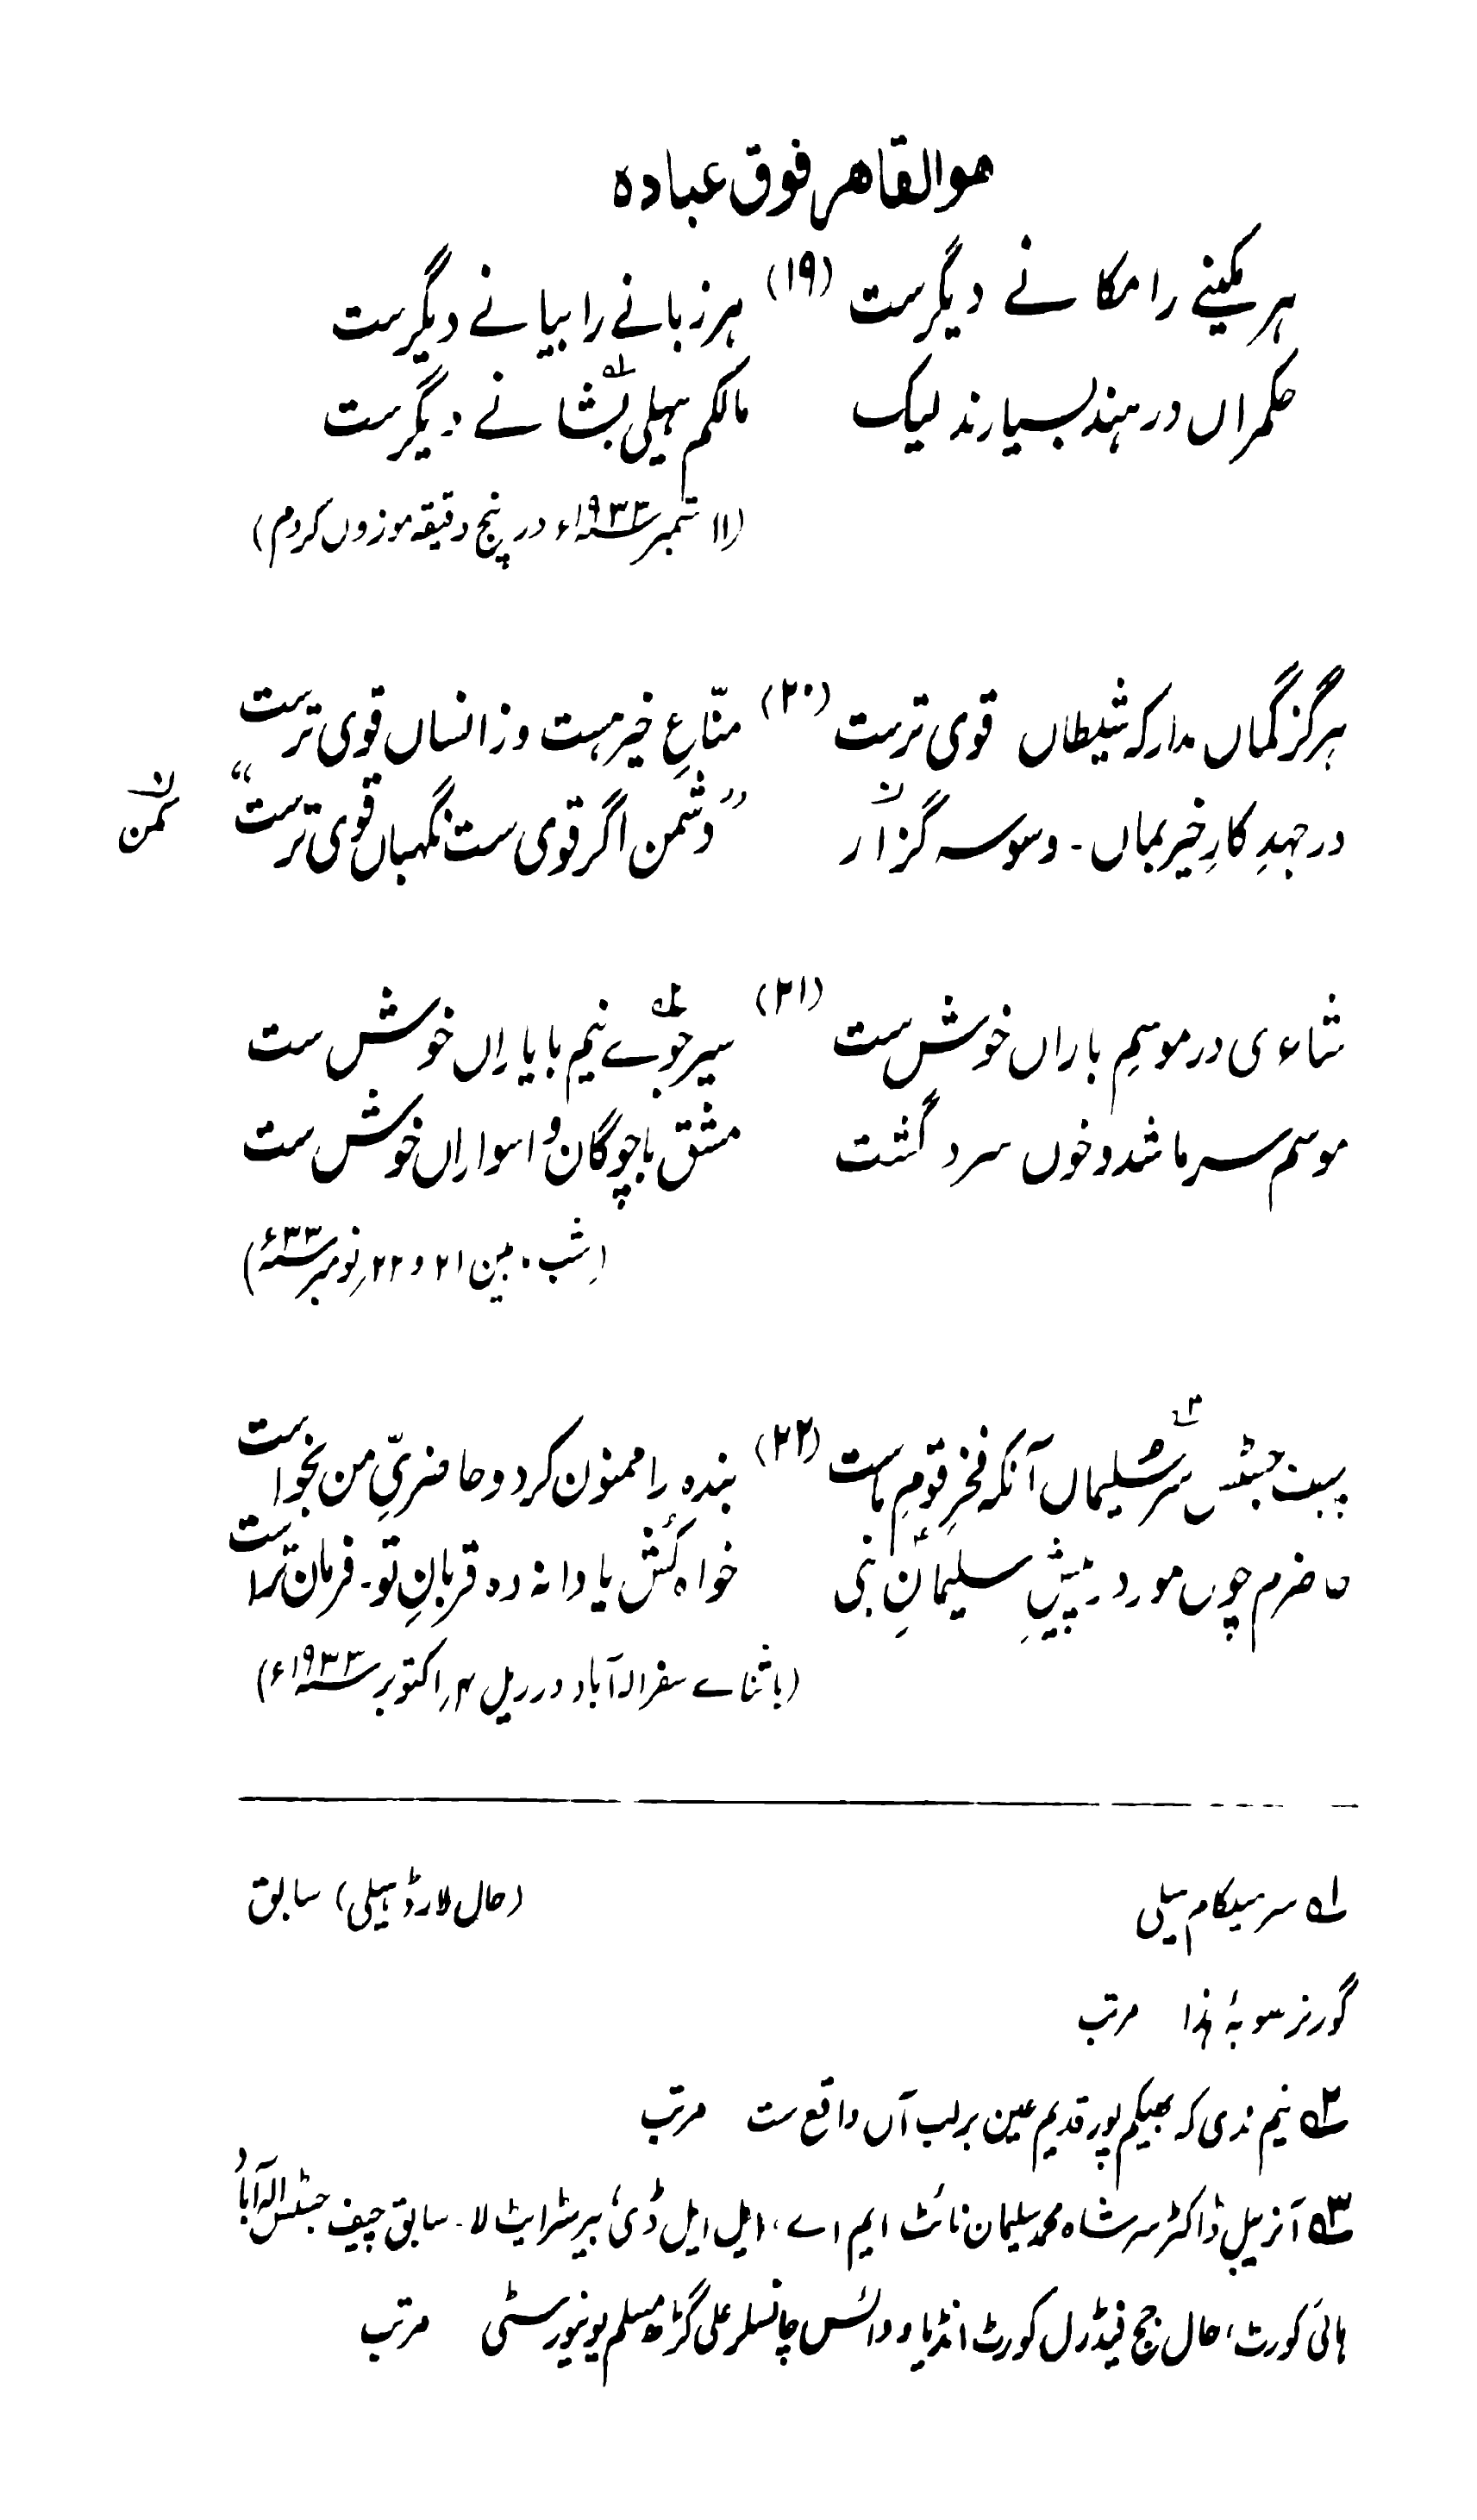 هوالقاهر فوق عباده
ہر مکینے را مکانے دیگرست (۱۹) ہر زبانے را بیانے دیگرست
حکمراں در ہند بسیارند لیک مالکم ہیلی ۱؎ بشانے دیگرست
(۱۱ ستمبر ۱۹۳۳ء در پنج دقیقہ موزوں کردم)
ہرگز گماں مدار کہ شیطاں قوی ترست (۲۰) منّاعِ خیر ہست و ز انساں قوی ترست
در جہدِ کارِ خیر بماں - وسوسہ گزار "دشمن اگر قوی ست نگہباں قوی ترست"
شاعری در موسمِ باراں خوش ست (۲۱) سیر جوئے نیم ۲؎ با یاراں خوش ست
موسم سرما شد و خوں سرد گشت مشق با چوگان و اسواراں خوش ست
(شب بین ۲۱ و ۲۲ نومبر ۳۳ء)
چیف جسٹس سر سلیماں ۳؎ آنکہ فخرِ قوم ماست (۲۲) بندہ را ممنون کرد و حاضریِّ من بخواست
حاضرم چوں مور در پیشِ سلیمانِ نبی خواہ کُش یا دانہ دہ قربانِ تو - فرمان تراست
(باثنائے سفر الہ آباد در ریل ۴ اکتوبر ۱۹۳۳ء)
۱؎ سر میلکام ہیلی (حال لارڈ ہیلی) سابق
گورنر صوبہ ہٰذا مرتب
۲؎ نیم ندی کہ بھیکم پور قدیم عین بر لب آں واقع ست مرتب
۳؎ آنریبل ڈاکٹر سر شاہ محمد سلیمان نائٹ ایم اے، ایل ایل ڈی، بیرسٹر ایٹ لا - سابق چیف جسٹس الہ آباد
ہائی کورٹ، حال جج فیڈرل کورٹ انڈیا و وائس چانسلر علی گڑھ مسلم یونیورسٹی مرتب